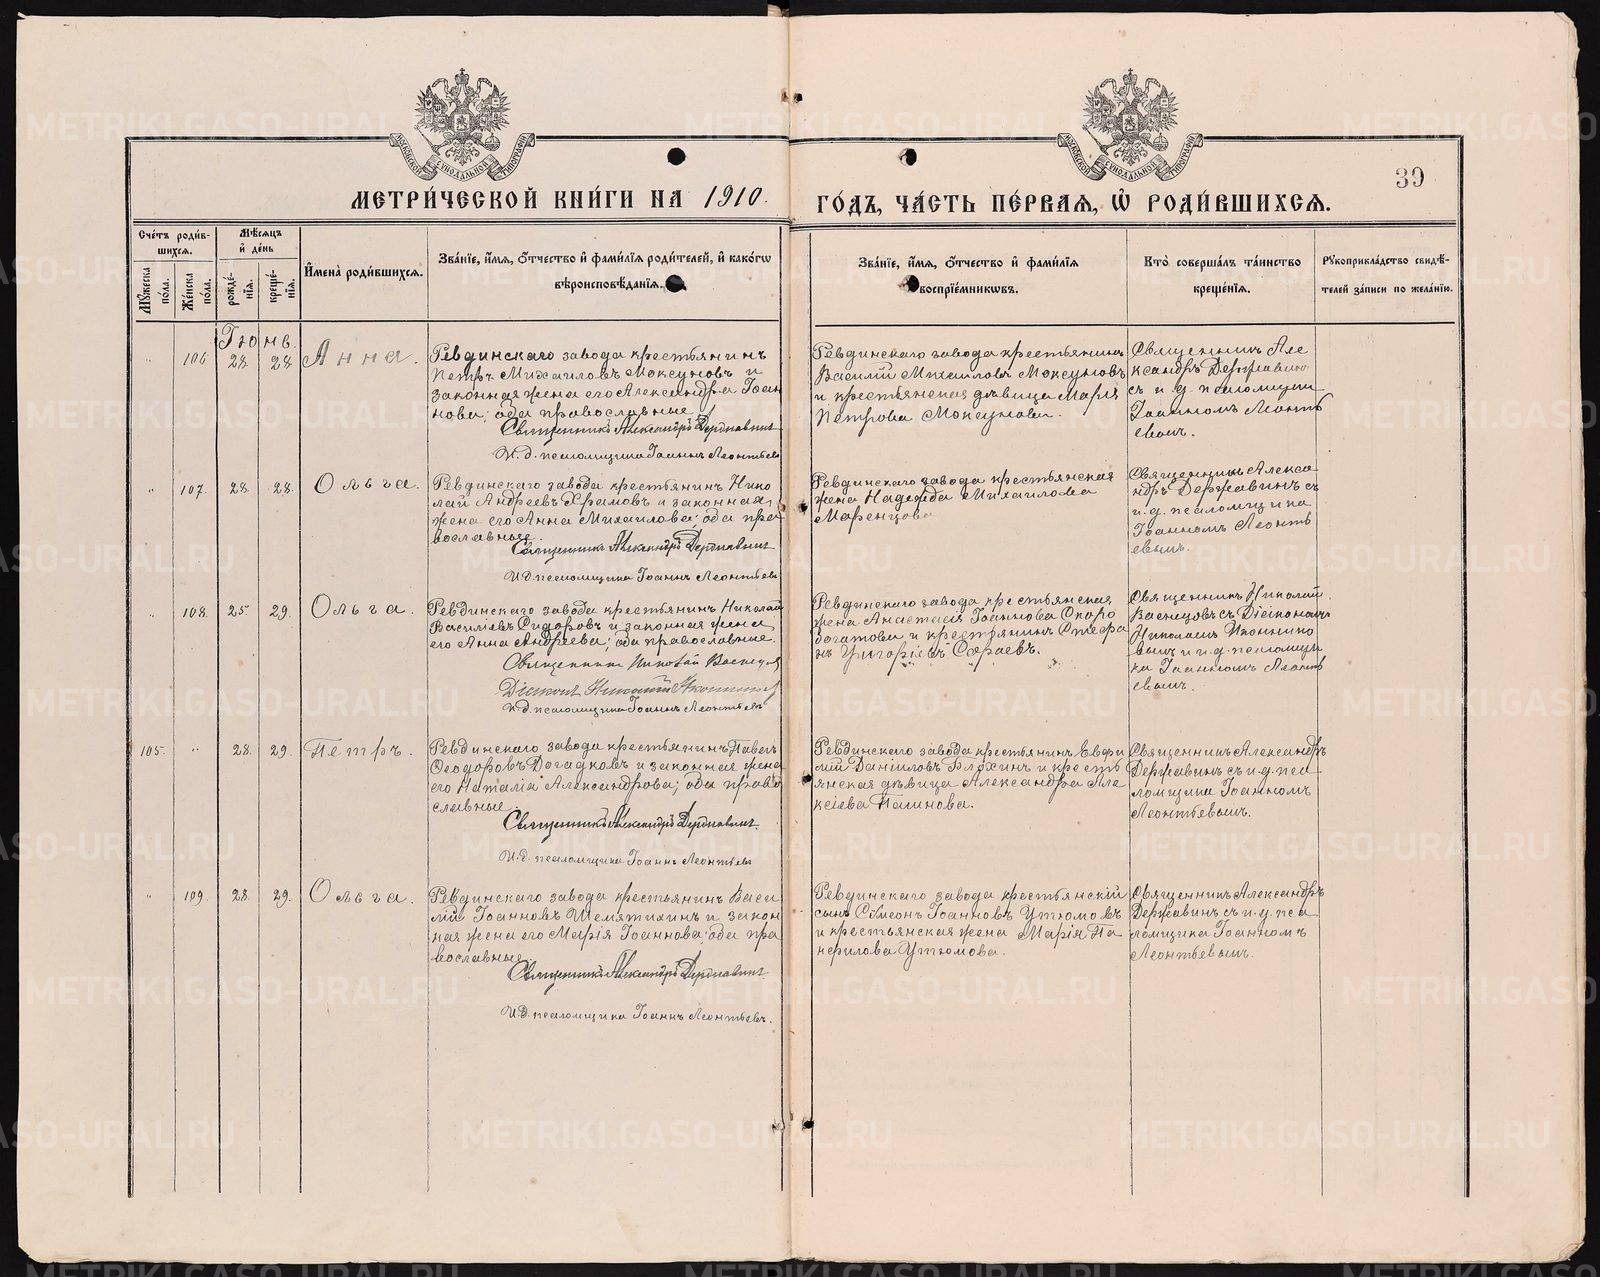 МОСКОВСКОЙ СѴНОДАЛЬНОЙ ТИПОГРАФІИ
МОСКОВСКОЙ СѴНОДАЛЬНОЙ ТИПОГРАФІИ
39
МЕТРИ́ЧЕСКОЙ КНИ́ГИ НА 1910.
ГО́ДЪ, ЧА́СТЬ ПЕ́РВАЯ, Ѽ РОДИ́ВШИХСЯ.
Сче́тъ роди́в-
шихся.
Мꙋ́жеска по́ла.
Же́нска по́ла.
Мѣ́сяцъ
и҆ де́нь
рожде́-
нїя.
креще́-
нїя.
И҆мена̀ роди́вшихся.
Зва́нїе, и҆́мя, ѻ҆́тчество и҆ фами́лїя роди́телей, и҆ како́гѡ
вѣроисповѣ́данїя.
Зва́нїе, и҆́мя, ѻ҆́тчество и҆ фами́лїя
воспрїе́мникѡвъ.
Кто̀ соверша́лъ та́инство
креще́нїя.
Рꙋкоприкла́дство свидѣ́-
телей за́писи по жела́нїю.
Іюнь.
" 106 28 28 Анна.
Ревдинскаго завода крестьянинъ
Петръ Михаиловъ Моксуновъ и
законная жена его Александра Іоан
нова; оба православные
Священникъ Александръ Державинъ
И. д. псаломщика Іоаннъ Леонтьевъ
Ревдинскаго завода крестьянинъ
Василій Михаиловъ Моксуновъ
и крестьянская дѣвица Марія
Петрова Моксунова.
Священникъ Але
ксандръ Державинъ
съ и. д. псаломщика
Іоанномъ Леонть
евымъ.
" 107. 28. 28. Ольга.
Ревдинскаго завода крестьянинъ Нико
лай Андреевъ Храмовъ и законная
жена его Анна Михаилова; оба пра
вославные.
Священникъ Александръ Державинъ
И. д. псаломщика Іоаннъ Леонтьевъ
Ревдинскаго завода крестьянская
жена Надежда Михаилова
Маренцова
Священникъ Алекса
ндръ Державинъ съ
и. д. псаломщика
Іоанномъ Леонть
евымъ.
" 108. 25 29. Ольга.
Ревдинскаго завода крестьянинъ Николай
Василіевъ Сидоровъ и законная жена
его Анна Андреева; оба православные.
Священникъ Николай Васнецов
Діаконъ Николай Иконников
И. д. псаломщика Іоаннъ Леонтьевъ
Ревдинскаго завода крестьянская
жена Анастасія Іоаннова Скоро
богатова и крестьянинъ Стефа
нъ Григоріевъ
Священникъ Николай
Васнецовъ съ Діакономъ
Николаемъ Иконнико
вымъ и и. д. псаломщи
ка Іоанномъ Леонть
евымъ.
105. " 28. 29. Петръ.
Ревдинскаго завода крестьянинъ Павелъ
Ѳеодоровъ Догадковъ и законная жена
его Наталія Александрова; оба право
славные.
Священникъ Александръ Державинъ.
И. д. псаломщика Іоаннъ Леонтьевъ
Ревдинскаго завода крестьянинъ Евфи
мій Даніиловъ Блохинъ и кресть
янская дѣвица Александра Але
ксіева Пашнова.
Священникъ Александръ
Державинъ съ и. д. пса
ломщика Іоанномъ
Леонтьевымъ.
" 109. 28. 29. Ольга.
Ревдинскаго завода крестьянинъ Васи
лій Іоанновъ Шемятихинъ и закон
ная жена его Марія Іоаннова; оба пра
вославные.
Священникъ Александръ Державинъ
И. д. псаломщика Іоаннъ Леонтьевъ.
Ревдинскаго завода крестьянскій
сынъ Сѵмеонъ Іоанновъ Утюмовъ
и крестьянская жена Марія Па
нфилова Утюмова.
Священникъ Александръ
Державинъ съ и. д. пса
ломщика Іоанномъ
Леонтьевымъ.
METRIKI.GASO-URAL.RU